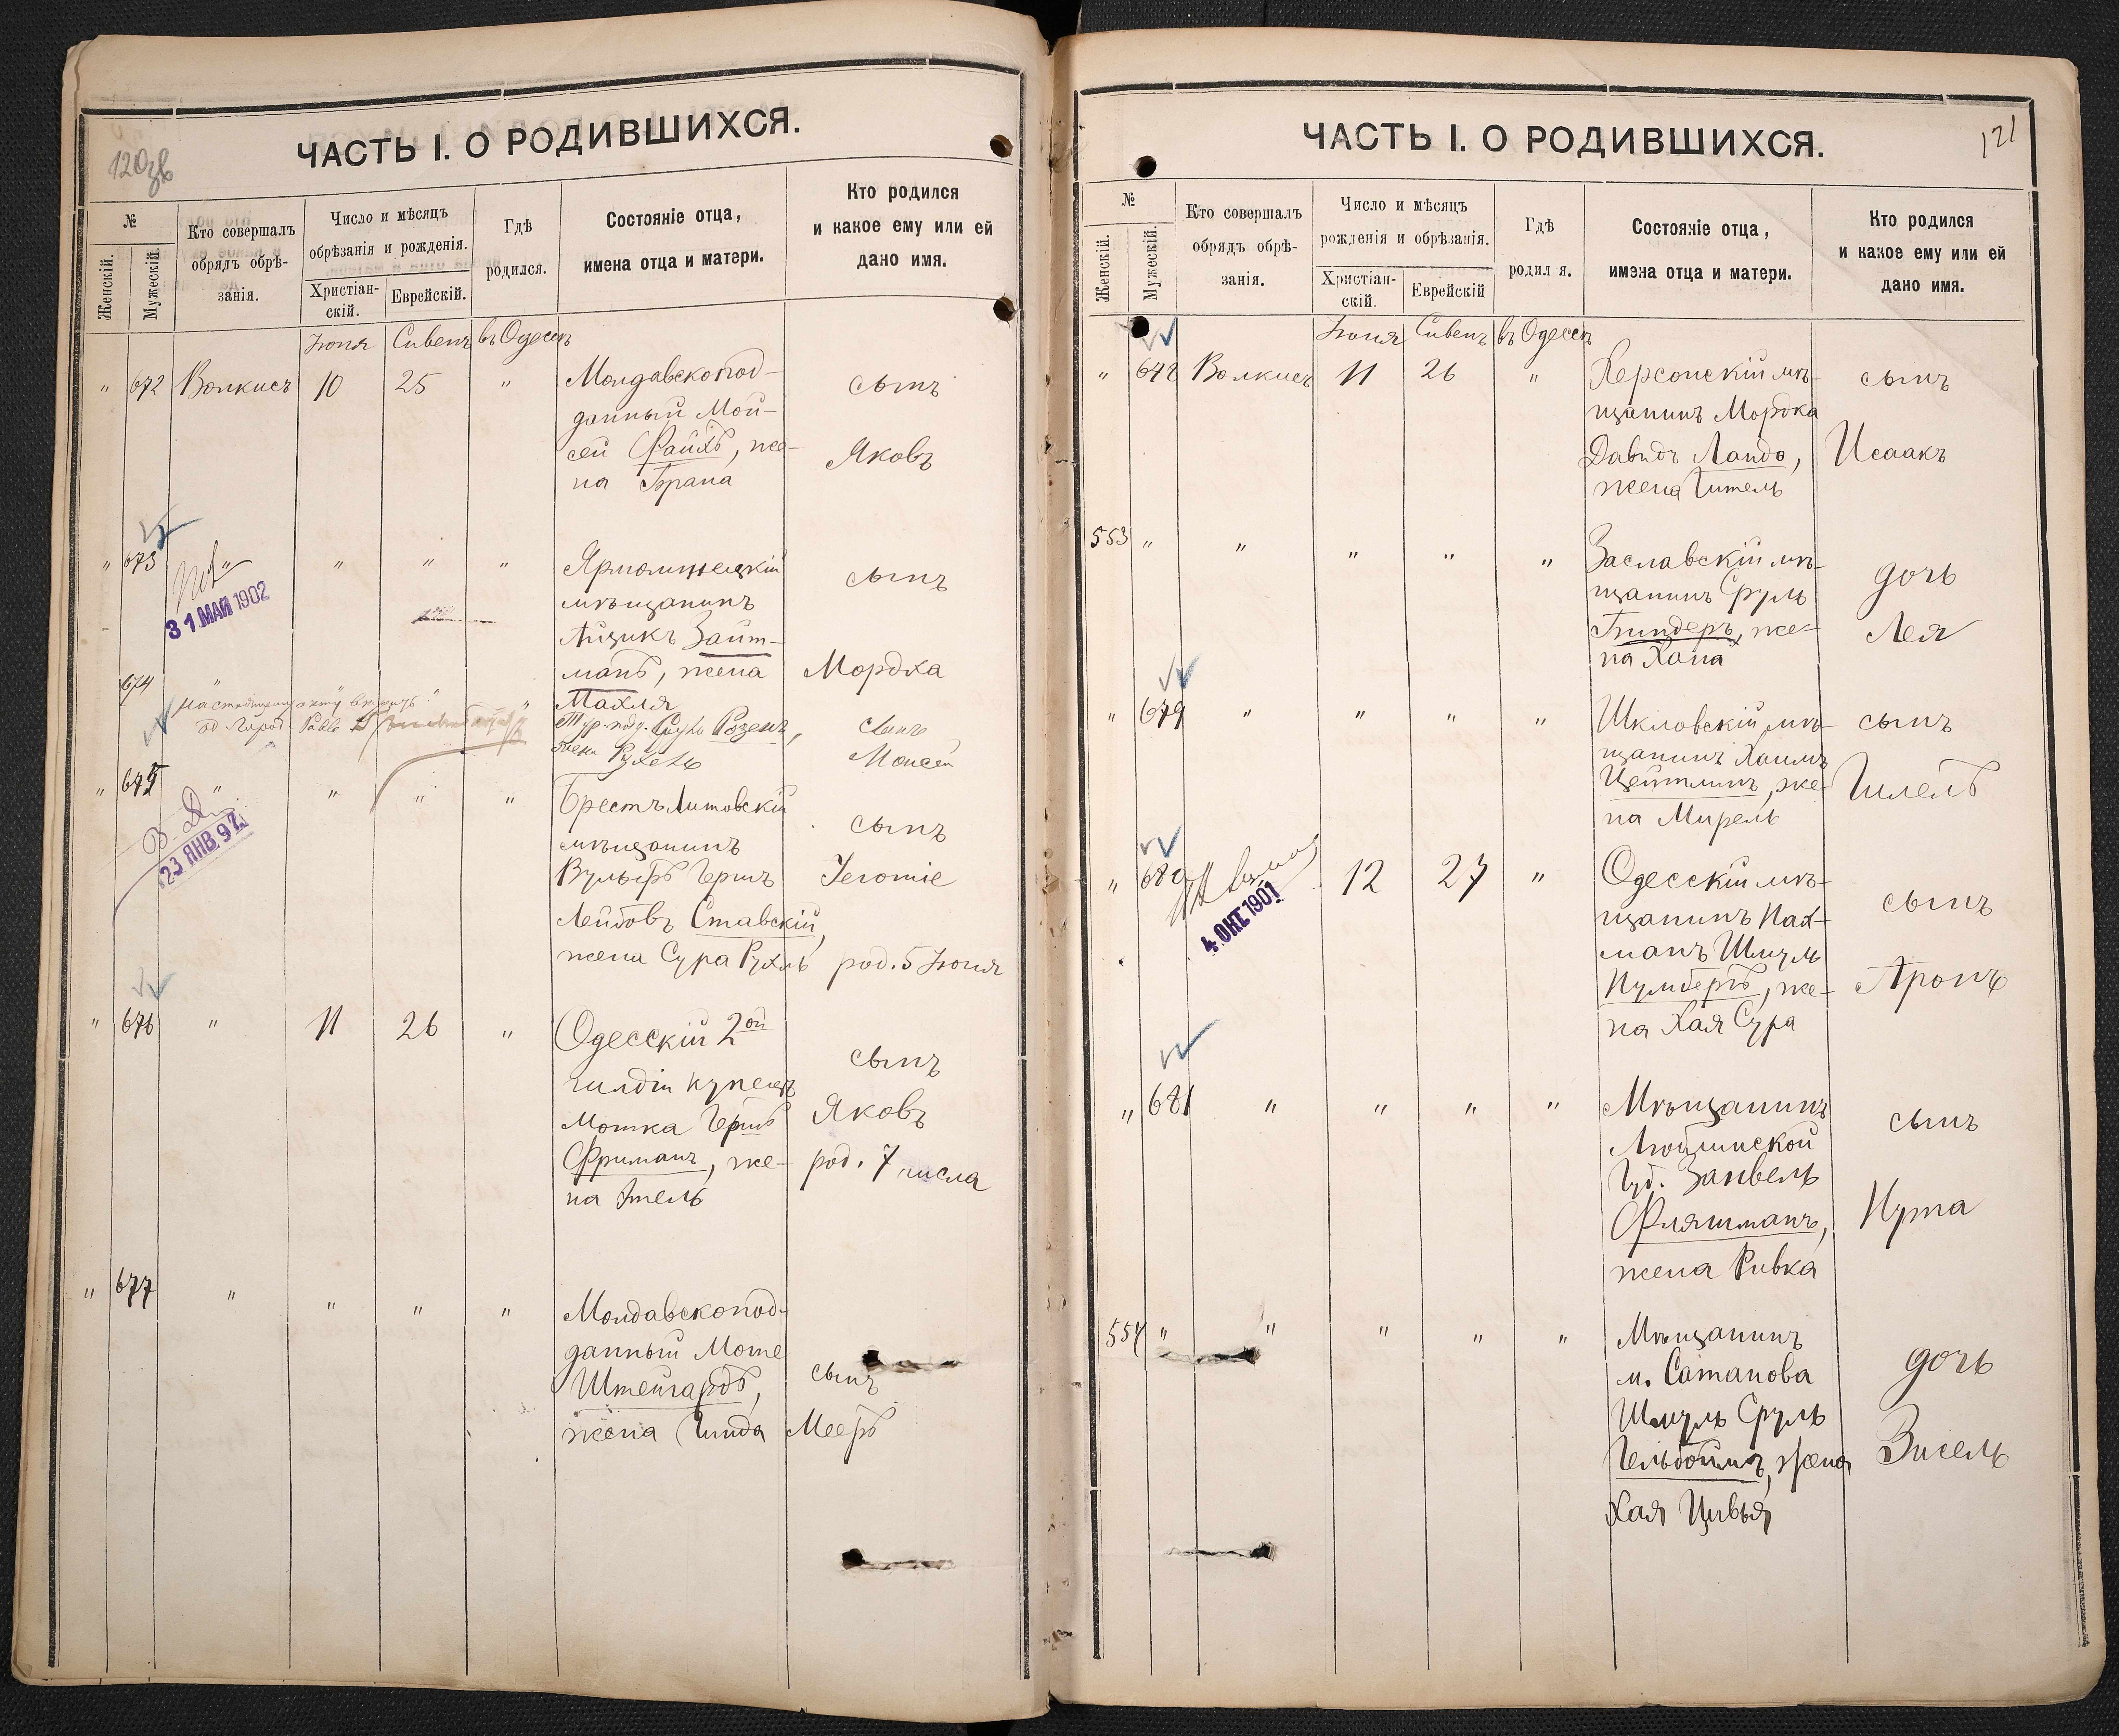 120зв
ЧАСТЬ I. О РОДИВШИХСЯ.
№
Женскій.
Мужескій.
Кто совершалъ
обрядъ обрѣ-
занія.
Число и мѣсяцъ
обрѣзанія и рожденія.
Христіан-
скій.
Еврейскій.
Гдѣ
родился.
Состояніе отца,
имена отца и матери.
Кто родился
и какое ему или ей
дано имя.
Іюня Сивенъ въ Одессѣ
" 672 Волкисъ 10 25 " Молдавскопод-
данный Мои-
сей Файлъ, же-
на Брана
сынъ
Яковъ
" 673 " " " " Ярмолинецкій
мѣщанинъ
Айзикъ Зайт-
манъ, жена
Махля
сынъ
Мордка
31 МАЙ 1902
674 " Тур. под. Розенъ,
жена Рухель
сынъ
Моисей
" 675 " " " " Брестъ Литовскій
мѣщанинъ
Вульфъ Гершъ
Лейбовъ Ставскій,
жена Сура Рухль
сынъ
Іеготіе
род. 5 Іюня
23 ЯНВ. 97
" 676 " 11 26 " Одесскій 2ой
гилдіи купецъ
Мошка Гершъ
Фриманъ, же-
на Этель
сынъ
Яковъ
род. 7 числа
" 677 " " " " Молдавскопод-
данный Моте
Штейгардъ,
жена Гинда
сынъ
Мееръ
121
ЧАСТЬ I. О РОДИВШИХСЯ.
№
Женскій.
Мужескій.
Кто совершалъ
обрядъ обрѣ-
занія.
Число и мѣсяцъ
рожденія и обрѣзанія.
Христіан-
скій.
Еврейскій
Гдѣ
родил я.
Состояніе отца,
имена отца и матери.
Кто родился
и какое ему или ей
дано имя.
Іюня Сивенъ въ Одессѣ
" 678 Волкисъ 11 26 " Херсонскій мѣ-
щанинъ Мордка
Давидъ Ландо,
жена Гитель
сынъ
Исаакъ
553 " " " " " Заславскій мѣ-
щанинъ Сруль
Биндеръ, же-
на Хана
дочь
Лея
" 679 " " " " Шкловскій мѣ-
щанинъ Хаимъ
Цейтлинъ, же-
на Мирель
сынъ
Гилель
" 680 12 27 " Одесскій мѣ-
щанинъ Нах-
манъ Шмуль
Нумбергъ, же-
на Хая Сура
сынъ
Аронъ
4 ОКТ 1901
" 681 " " " " Мѣщанинъ
Люблинской
Губ. Занвель
Фляшманъ,
жена Ривка
сынъ
Нута
554 " " " " " Мѣщанинъ
м. Сатанова
Шмуль Сруль
Гельбоймъ, жена
Хая Цивья
дочь
Зисель